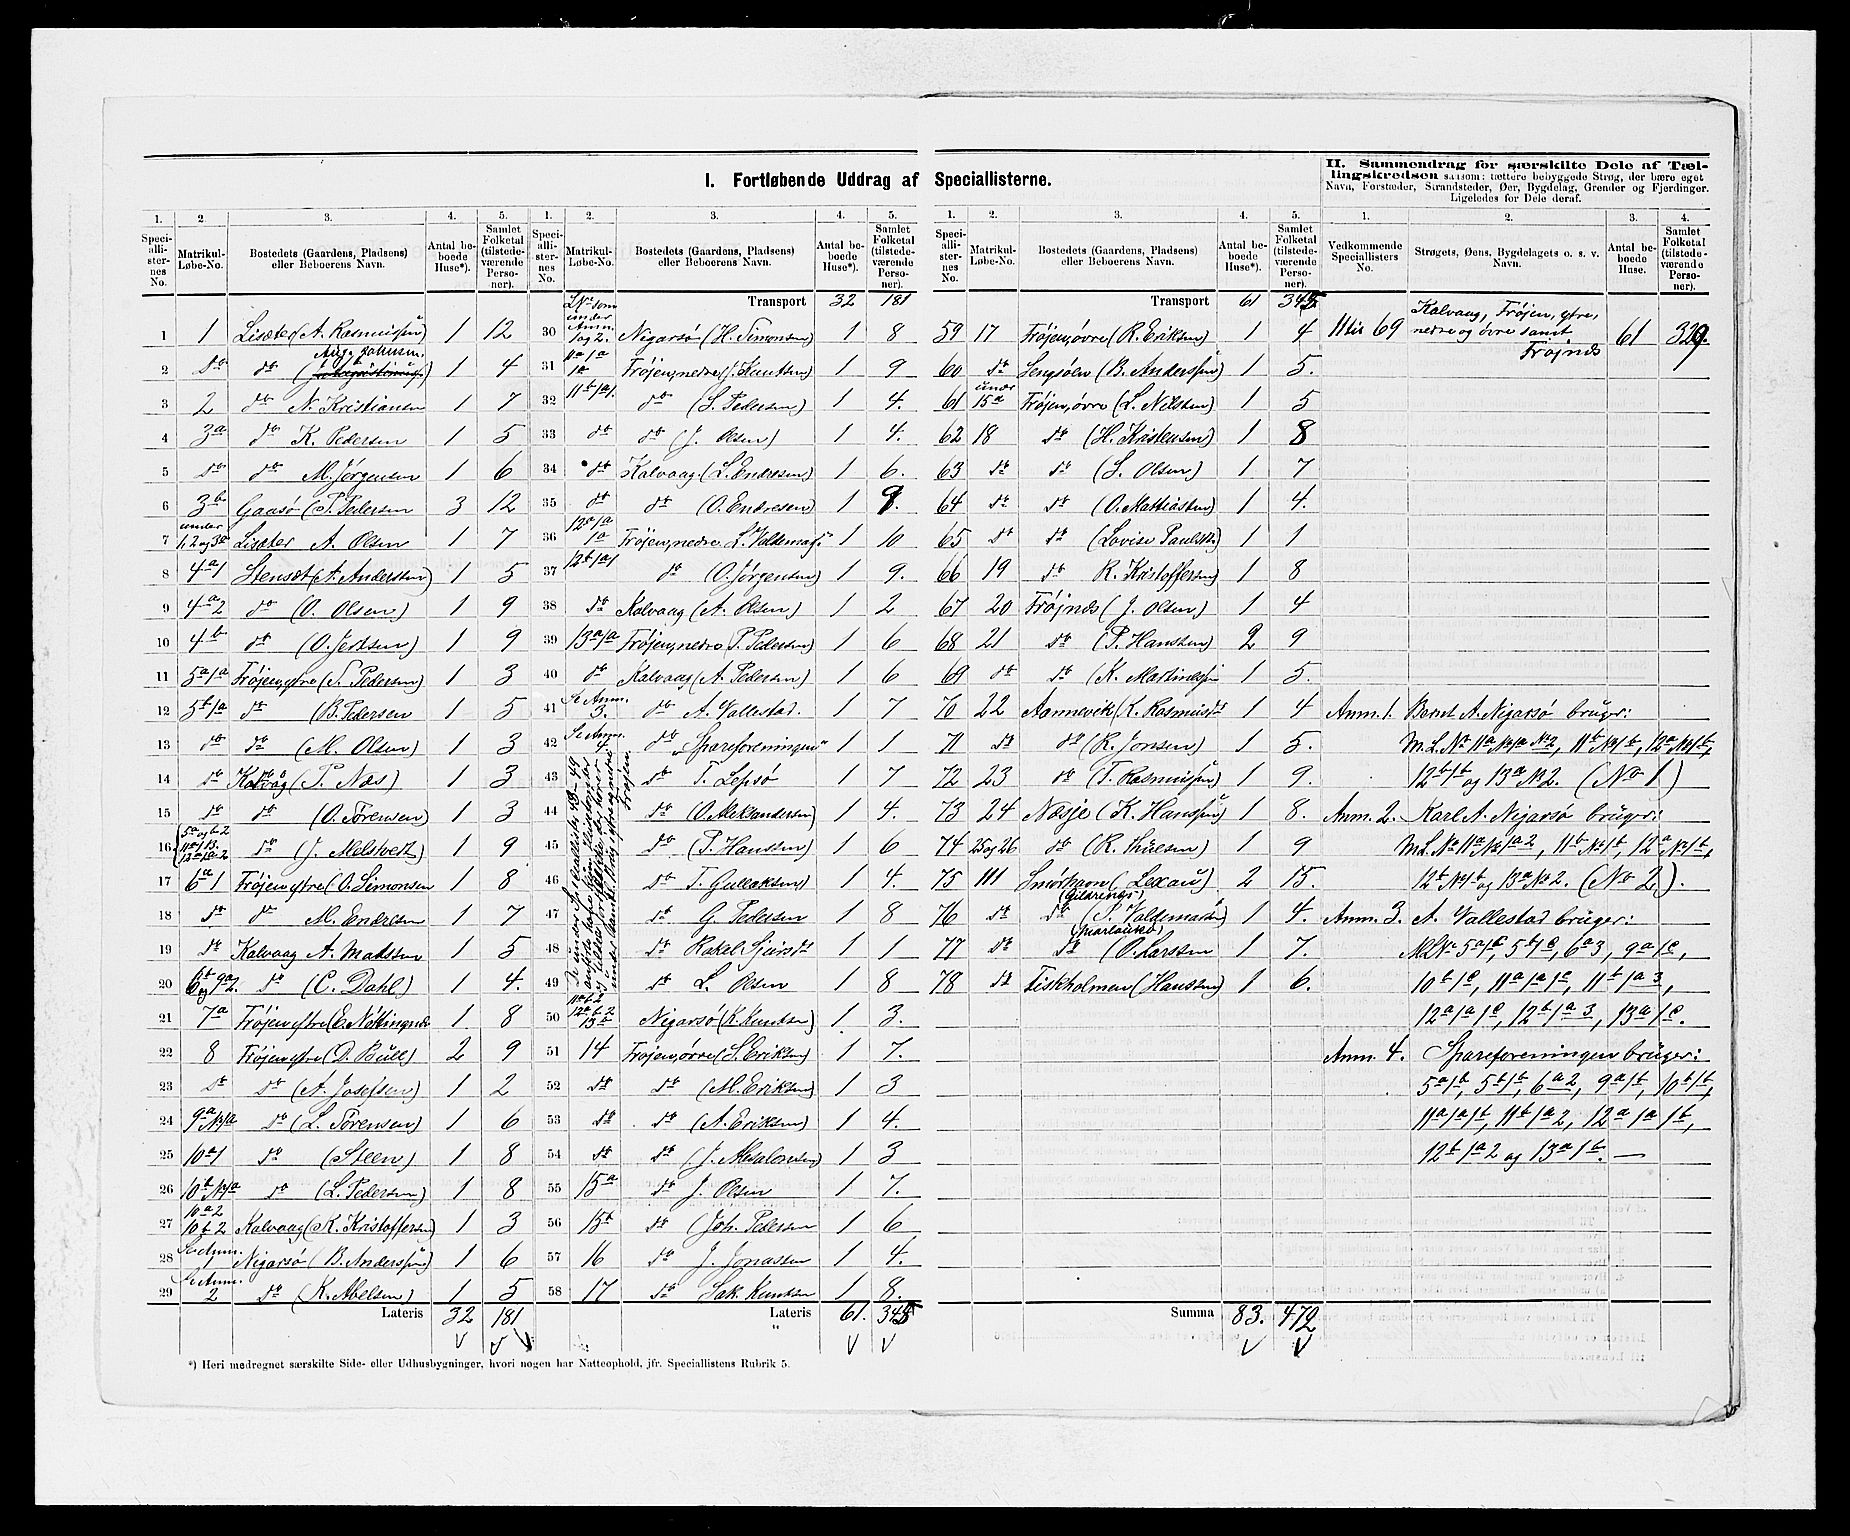 I. Fortløbende Uddrag af Speciallisterne.
II. Sammendrag for særskilte Dele af Tæl-
lingskredsen saasom: tættere bebyggede Strøg, der bære eget
Navn, Forstæder, Strandsteder, Øer, Bygdelag, Grender og Fjerdinger.
Ligeledes for Dele deraf.
1. 2. 3. 4. 5. 1. 2. 3. 4. 5. 1. 2. 3. 4. 5. 1. 2. 3. 4.
Speciallisternes No. Matrikul-Løbe-No. Bostedets (Gaardens, Pladsens) eller Beboerens Navn. Antal beboede Huse*). Samlet Folketal (tilstedeværende Personer).
Speciallisternes No. Matrikul-Løbe-No. Bostedets (Gaardens, Pladsens) eller Beboerens Navn. Antal beboede Huse*). Samlet Folketal (tilstedeværende Personer).
Speciallisternes No. Matrikul-Løbe-No. Bostedets (Gaardens, Pladsens) eller Beboerens Navn. Antal beboede Huse*). Samlet Folketal (tilstedeværende Personer).
Vedkommende Speciallisters No. Strøgets, Øens, Bygdelagets o. s. v. Navn. Antal beboede Huse. Samlet Folketal (tilstedeværende Personer).
1 1 Lisæter (A. Rasmussen) 1 12
2 do do (Aug. Johnsen) 1 4
3 2 do N. Kristiansen 1 7
4 3a do K. Pedersen 1 5
5 do do M. Jørgensen 1 6
6 3b Gaasø (T. Pedersen 3 12
7 under 1, 2 og 3a Lisæter A. Olsen 1 7
8 4a1 Stensæt (A. Anderssen) 1 5
9 4a2 do (O. Olsen) 1 9
10 4b do (O. Jertsen) 1 9
11 5a1a Frøjen, ytre (S. Pedersen) 1 3
12 5b1a do (B. Pedersen 1 5
13 do do (M. Olsen) 1 3
14 do Kalvåg (P. Næs) 1 3
15 do do (O. Sørensen) 1 3
16 do (J. Melstveit) 1 9
17 6a1 Frøjen ytre (O. Simonsen 1 8
18 do do M. Endresen 1 7
19 do Kalvaag A. Madssen 1 5
20 6b og 9a2. do (C. Dahl) 1 4.
21 7a Frøjen ytre (E. Nøttingnes 1 8
22 8 Frøjen ytre (D. Bull) 2 9
23 do do (A. Josefsen) 1 2
24 9a No 1a do (L. Sørensen) 1 6
25 10a1 do (Steen) 1 8
26 10b No 1a do (L. Pedersen) 1 8
27 10a2 10b2 Kalvaag (K. Kristoffersen) 1 3
28 Se Anm. 1 Nigarsø (B. Anderssen) 1 6
29 Se Anm. 2 do (K. Abelsen) 1 5
Lateris 32 181
Transport 32 181
30 L No som under Anm. 1 og 2. Nigarsø (H. Simonsen) 1 8
31 11a1a 1a Frøjen, nedre (J. Knutsen) 1 9
32 11b1a1. do (S. Pedersen) 1 4.
33 do do (J. Olsen) 1 4.
34 do Kalvaag (L. Endresen) 1 6.
35 do do (O. Endresen) 1 9.
36 12a1a 1a Frøjen, nedre L. Valdemars. 1 10
37 12b1a1 do (O. Jørgensen) 1 9.
38 do Kalvaag (A. Olsen) 1 2
39 13a1a Frøjen, nedre P. Pedersen) 1 6
40 do Kalvaag (A. Pedersen) 1 6
41 Se Anm. 3. do A. Vallestad. 1 7
42 Se Anm. 4. do "Spareforeningen" 1 1
43 do T. Lepsø 1 7
44 do (O. Aleksandersen) 1 4.
45 do (P. Hanssen) 1 7
46 do T. Gullaksen) 1 4.
47 do G. Pedersen 1 8
48 do Rakel Sjursdt 1 1
49 do L. Olsen 1 8
50 11a b 2 12a b 2 13b Nigarsø (K. Knutsen) 1 3.
51 14 Frøjen, øvre (S. Eriksen) 1 7.
52 do do (M. Eriksen) 1 3
53 do do (A. Eriksen) 1 4.
54 do do (J. Absalonsen) 1 3
55 15a do J. Olsen 1 7.
56 15b do (Joh. Pedersen 1 6
57 16 do J. Jonassen 1 4.
58 17 do Sak. Knutsen 1 8.
Lateris 61. 345
Transport 61 345
59 17 Frøjen, øvre (R. Eriksen) 1 4
60 do Sengsøen (B. Anderssen) 1 5.
61 under 15a Frøjen, øvre (L. Nilssen) 1 5
62 18 do (H. Kristensen) 1 8
63 do do (S. Olsen) 1 7
64 do do (O. Mattiassen) 1 4.
65 do do (Lovise Paulsdt.) 1 1
66 19 do R. Kristoffersen) 1 8
67 20 Frøjnes (J. Olsen) 1 4
68 21 do (P. Hanssen) 2 9
69 do do (K. Martinussen 1 5.
70 22 Aannevik (K. Rasmusdt 1 4
71 do do (R. Jonsen) 1 5.
72 23 do (T. Rasmussen) 1 9.
73 24 Næsje (K. Hanssen) 1 8.
74 25 og 26 do (R. Thuesen) 1 9
75 111 Smørhavn (Lexau) 2 15.
76 do do (S. Valdemarsen) 1 4.
77 do do (O. Larssen 1 7.
78 do Fiskholmen (Hanssen) 1 6.
Summa 83. 472
11 til 69 Kalvaag, Frøjen, ytre,
nedre og øvre samt
Frøjnes 61 329.
Anm. 1. Bernt A. Nigarsø bruger:
M. L. No 11a No 1a No 2, 11b No 1b, 12a No 1b,
12b 1b og 13a No 2. (No 1)
Anm. 2. Karl A. Nigarsø bruger:
M. L. No 11a No 1a 2, 11b No 1b, 12a No 1b,
12b No 1b og 13a No 2. (No 2).
Anm. 3. A. Vallestad bruger:
M L No 5a1c, 5b1c, 6a3, 9a1c,
10b1c, 11a1a1c, 11b1a3,
12a1a1c, 12b1a3, 13a1c.
Anm. 4. Spareforeningen bruger:
5a1b, 5b1b, 6a2, 9a1b, 10b1b,
11a1a1b, 11b1a2, 12a1a1b,
12b1a2 og 13a1b. —
*) Heri medregnet særskilte Side- eller Udhusbygninger, hvori nogen har Natteophold, jfr. Speciallistens Rubrik 5.